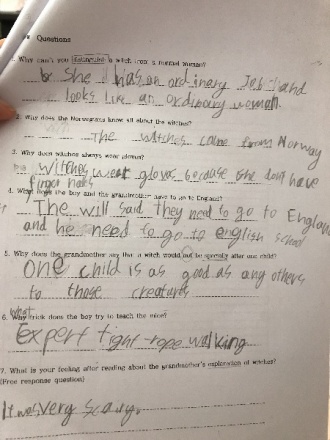 Questions
1. Why can't you distinguish a witch from a normal woman?
She has an ordinary Job and
looks like an ordinary woman.
2. Why does the Norwegians know all about the witches?
The witches came from Norway
3. Why does witches always wear gloves?
witches wear gloves because she don't have
finger nails
4. What made the boy and the grandmother have to go to England?
The will said they need to go to England
and he need to go to english school
5. Why does the grandmother say that a witch would not be specially after one child?
One child is as good as any others
to those creatures
6. What trick does the boy try to teach the mice?
Expert tight-rope walking
7. What is your feeling after reading about the grandmother's explanation of witches?
(Free response question)
It was very scary.